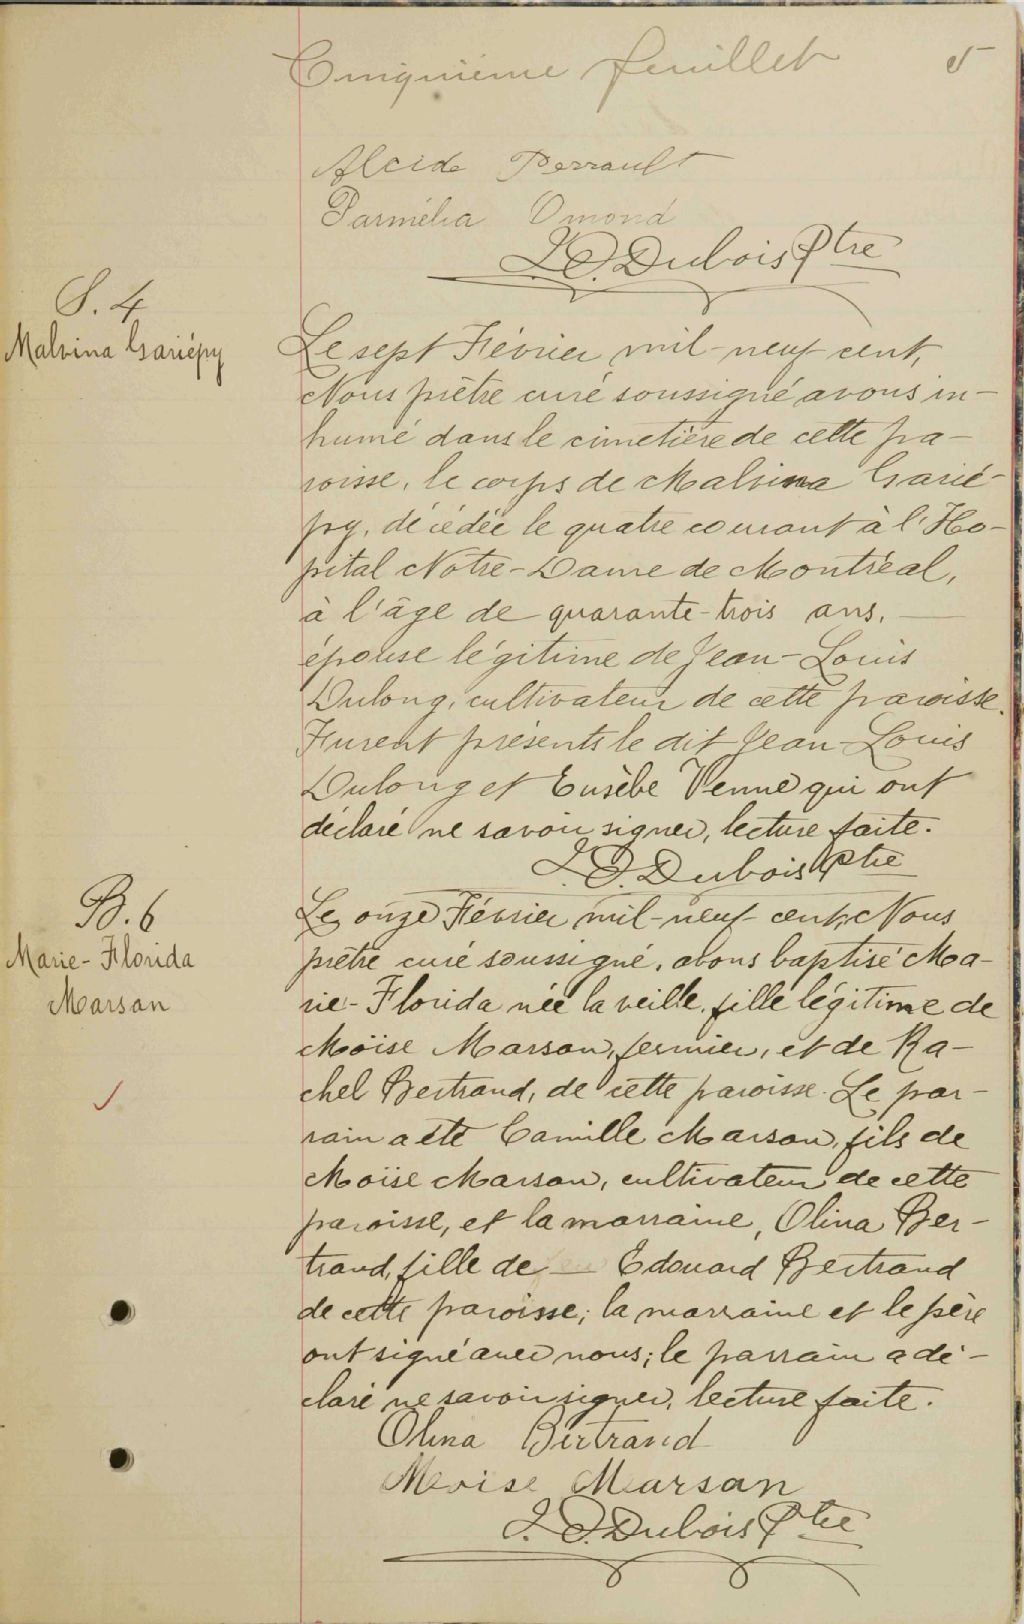 Cinquième feuillet 5
Alcide Perrault
Parmélia Omond
J.O. Dubois Ptre
S. 4
Malvina Gariépy
Le sept Février mil-neuf cent,
Nous prêtre curé soussigné avons in-
humé dans le cimetière de cette pa-
roisse, le corps de Malvina Garié-
py, décédée le quatre courant à l'Ho-
pital Notre-Dame de Montréal,
à l'âge de quarante-trois ans, —
épouse légitime de Jean-Louis
Dulong, cultivateur de cette paroisse.
Furent présents le dit Jean-Louis
Dulong et Eusèbe Venne qui ont
déclaré ne savoir signer, lecture faite.
J.O. Dubois Ptre
B. 6
Marie-Florida
Marsan
Le onze Février mil-neuf cent, Nous
prêtre curé soussigné, avons baptisé Ma-
rie-Florida née la veille, fille légitime de
Moïse Marsan, fermier, et de Ra-
chel Bertrand, de cette paroisse. Le par-
rain a été Camille Marsan, fils de
Moïse Marsan, cultivateur de cette
paroisse, et la marraine, Olina Ber-
trand, fille de — Edouard Bertrand
de cette paroisse; la marraine et le père
ont signé avec nous; le parrain a dé-
claré ne savoir signer, lecture faite.
Olina Bertrand
Moise Marsan
J.O. Dubois Ptre